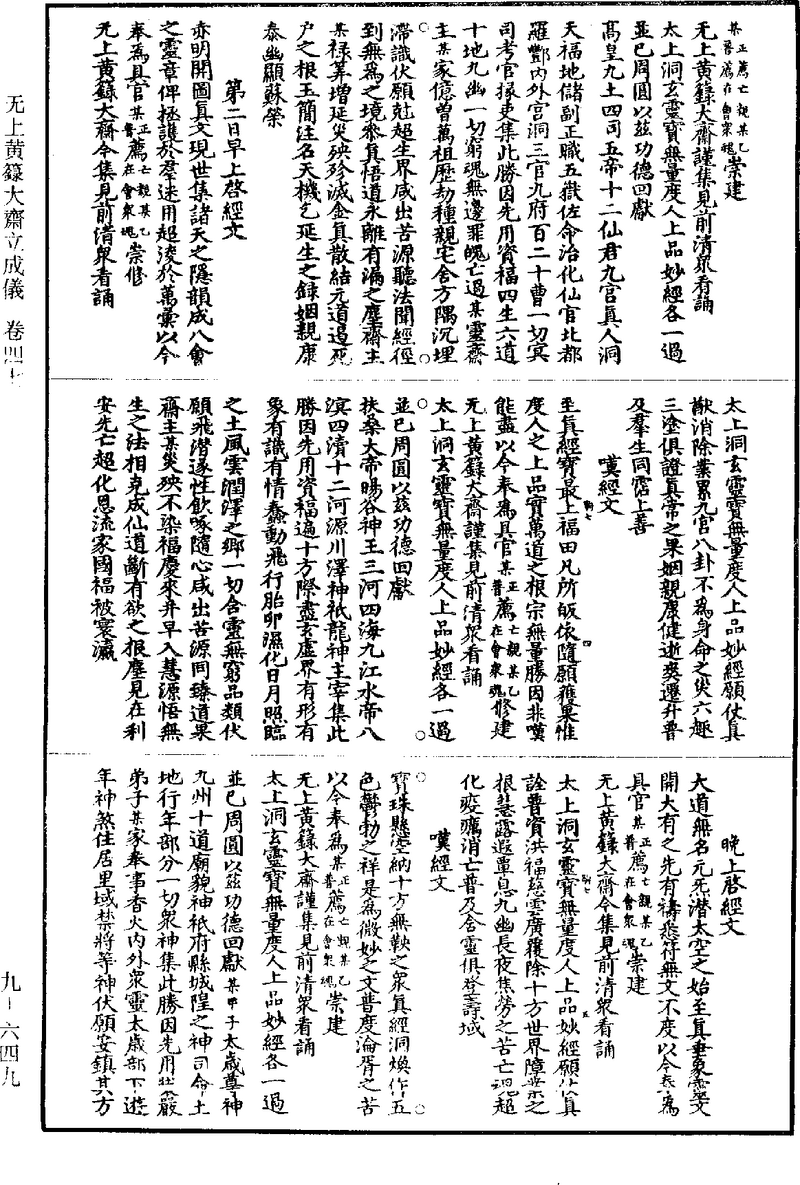 某正薦亡親某乙普薦在會衆魂崇建
无上黃籙大齋謹集見前清衆看誦
太上洞玄靈寶無量度人上品妙經各一過
並已周圓以茲功德回獻
高皇九土四司五帝十二仙君九宮真人洞
天福地儲副正職五嶽佐命治化仙官北都
羅酆內外宮洞三官九府百二十曹一切冥
司考官掾吏集此勝因先用資福四生六道
十地九幽一切窮魂無邊罪魄亡過某靈齋
主某家億曾萬祖歷劫種親宅舍方隅沉埋
滯識伏願尅超生界咸出苦源聽法聞經徑
到無為之境參真悟道永離有漏之塵齋主
某祿筭增延災殃殄滅金真散結元道過死
户之根玉簡注名天機乞延生之錄姻親康
泰幽顯蘇榮
第二日早上啓經文
赤明開圖真文現世集諸天之隱韻成八會
之靈章俾拯護於羣迷用超淩於萬彙以今
奉為具官某正薦亡親某乙普薦在會衆魂崇修
无上黃籙大齋今集見前清衆看誦
太上洞玄靈寶無量度人上品妙經願仗真
猷消除業累九宮八卦不為身命之災六趣
三塗俱證真常之果姻親康健逝爽遷升普
及羣生同霑上善
嘆經文
至真經寶最上福田凡所皈依隨願獲果惟
度人之上品實萬道之根宗無量勝因非嘆
能盡以今奉為具官某正薦亡親某乙普薦在會衆魂修建
无上黃籙大齋謹集見前清衆看誦
太上洞玄靈寶無量度人上品妙經各一過
並已周圓以茲功德回獻
扶桑大帝暘谷神王三河四海九江水帝八
溟四瀆十二河源川澤神祇龍神主宰集此
勝因先用資福遍十方際盡玄虛界有形有
象有識有情蠢動飛行胎卵濕化日月照臨
之土風雲潤澤之鄉一切含靈無窮品類伏
願飛潛遂性飲啄隨心咸出苦源同臻道果
齋主某災殃不染福慶來并早入慧源悟無
生之法相克成仙道斷有欲之根塵見在利
安先亡超化恩流家國福被寰瀛
晚上啓經文
大道無名元炁潛太空之始至真垂象靈文
開大有之先有禱發符無文不度以今奉為
具官某正薦亡親某乙普薦在會衆魂崇建
无上黃籙大齋今集見前清衆看誦
太上洞玄靈寶無量度人上品妙經願仗真
詮普資洪福慈雲廣覆除十方世界障業之
根慧露遐覃息九幽長夜焦勞之苦亡魂超
化疫癘消亡普及含靈俱登壽域
嘆經文
寶珠懸空納十方無鞅之衆真經洞煥作五
色鬱勃之祥是為微妙之文普度淪胥之苦
以今奉為某正薦亡親某乙普薦在會衆魂崇建
无上黃籙大齋謹集見前清衆看誦
太上洞玄靈寶無量度人上品妙經各一過
並已周圓以茲功德回獻某甲子太歲尊神
九州十道廟貌神祇府縣城隍之神司命土
地行年部分一切衆神集此勝因先用莊嚴
弟子某家奉事香火內外衆靈太歲部下遊
年神煞住居里域禁將等神伏願安鎮其方
无上黃籙大齋立成儀 卷四七
九-六四九